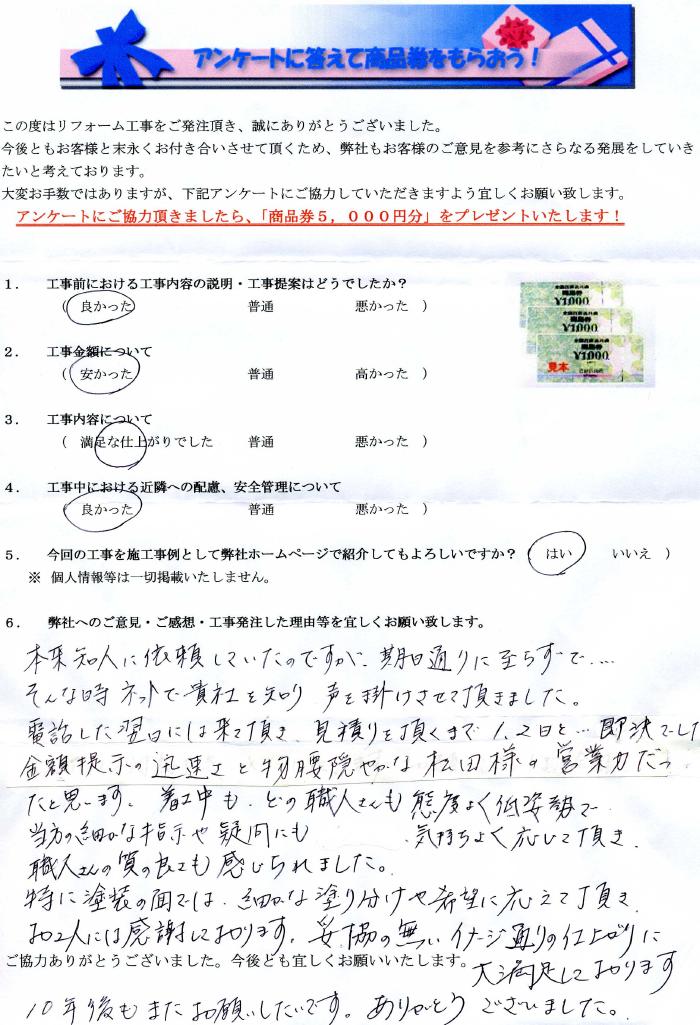 アンケートに答えて商品券をもらおう！
この度はリフォーム工事をご発注頂き、誠にありがとうございました。
今後ともお客様と末永くお付き合いさせて頂くため、弊社もお客様のご意見を参考にさらなる発展をしていき
たいと考えております。
大変お手数ではありますが、下記アンケートにご協力していただきますよう宜しくお願い致します。
アンケートにご協力頂きましたら、「商品券５，０００円分」をプレゼントいたします！
１． 工事前における工事内容の説明・工事提案はどうでしたか？
（ 良かった 普通 悪かった ）
２． 工事金額について
（ 安かった 普通 高かった ）
３． 工事内容について
（ 満足な仕上がりでした 普通 悪かった ）
４． 工事中における近隣への配慮、安全管理について
（ 良かった 普通 悪かった ）
商品券
¥1,000
商品券
¥1,000
商品券
¥1,000
見本
５． 今回の工事を施工事例として弊社ホームページで紹介してもよろしいですか？（ はい いいえ ）
※ 個人情報等は一切掲載いたしません。
６． 弊社へのご意見・ご感想・工事発注した理由等を宜しくお願い致します。
本来知人に依頼していたのですが、期日通りに至らずで….
そんな時ネットで貴社を知り 声を掛けさせて頂きました。
電話した翌日には来て頂き、見積りを頂くまで1、2日と…即決でした
金額提示の迅速さと物腰隠やかな松田様の営業力だっ
たと思います。着工中も、どの職人さんも態度よく低姿勢で
当方の細かな指示や疑問にも 、気持ちよく応じて頂き、
職人さんの質の良さも感じられました。
特に塗装の面では、細かな塗り分けや希望に応えて頂き、
お2人には感謝しております。妥協の無いイメージ通りの仕上がりに
大満足しております
ご協力ありがとうございました。今後とも宜しくお願いいたします。
10年後もまたお願いしたいです。ありがとうございました。